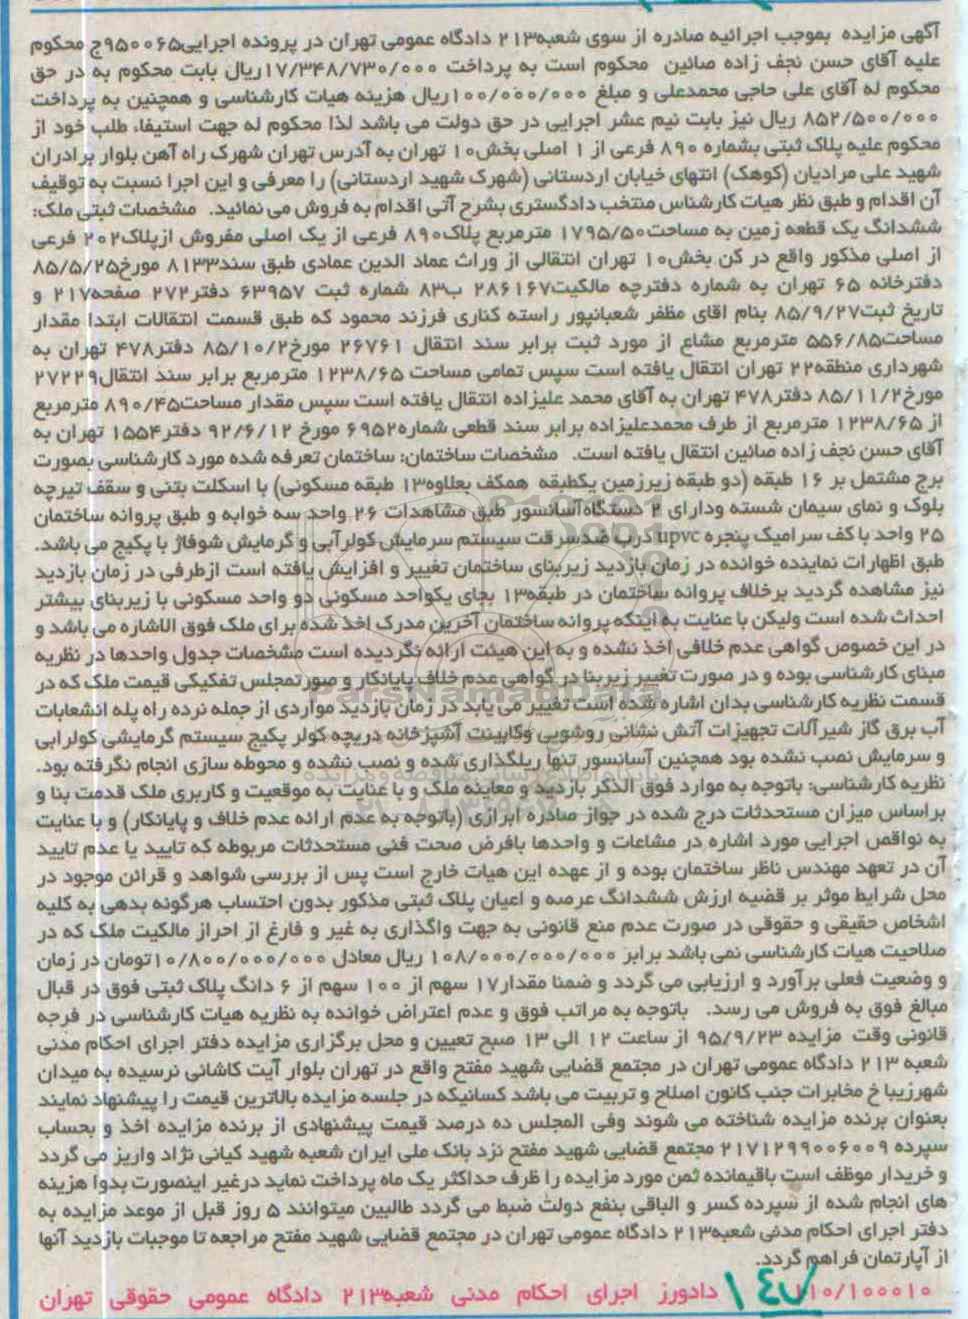 آگهی مزایده بموجب اجرائیه صادره از سوی شعبه۲۱۳ دادگاه عمومی تهران در پرونده اجرایی۹۵۰۰۶۵ج محکوم
علیه آقای حسن نجف زاده صائین محکوم است به پرداخت ۱۷/۳۴۸/۷۳۰/۰۰۰ریال بابت محکوم به در حق
محکوم له آقای علی حاجی محمدعلی و مبلغ ۱۰۰/۰۰۰/۰۰۰ریال هزینه هیات کارشناسی و همچنین به پرداخت
۸۵۲/۵۰۰/۰۰۰ ریال نیز بابت نیم عشر اجرایی در حق دولت می باشد لذا محکوم له جهت استیفاء طلب خود از
محکوم علیه پلاک ثبتی بشماره ۸۹۰ فرعی از ۱ اصلی بخش۱۰ تهران به آدرس تهران شهرک راه آهن بلوار برادران
شهید علی مرادیان (کوهک) انتهای خیابان اردستانی (شهرک شهید اردستانی) را معرفی و این اجرا نسبت به توقیف
آن اقدام و طبق نظر هیات کارشناس منتخب دادگستری بشرح آتی اقدام به فروش می نمائید. مشخصات ثبتی ملک:
ششدانگ یک قطعه زمین به مساحت۱۷۹۵/۵۰ مترمربع پلاک۸۹۰ فرعی از یک اصلی مفروش ازپلاک۲۰۲ فرعی
از اصلی مذکور واقع در کن بخش۱۰ تهران انتقالی از وراث عماد الدین عمادی طبق سند۸۱۳۳ مورخ۸۵/۵/۲۵
دفترخانه ۶۵ تهران به شماره دفترچه مالکیت۲۸۶۱۶۷ ب۸۳ شماره ثبت ۶۳۹۵۷ دفتر۲۷۲ صفحه۲۱۷ و
تاریخ ثبت۸۵/۹/۲۷ بنام اقای مظفر شعبانپور راسته کناری فرزند محمود که طبق قسمت انتقالات ابتدا مقدار
مساحت۵۵۶/۸۵ مترمربع مشاع از مورد ثبت برابر سند انتقال ۲۶۷۶۱ مورخ۸۵/۱۰/۲ دفتر۴۷۸ تهران به
شهرداری منطقه۲۲ تهران انتقال یافته است سپس تمامی مساحت ۱۲۳۸/۶۵ مترمربع برابر سند انتقال۲۷۲۲۹
مورخ۸۵/۱۱/۲ دفتر۴۷۸ تهران به آقای محمد علیزاده انتقال یافته است سپس مقدار مساحت۸۹۰/۴۵ مترمربع
از ۱۲۳۸/۶۵ مترمربع از طرف محمدعلیزاده برابر سند قطعی شماره۶۹۵۲ مورخ ۹۲/۶/۱۲ دفتر۱۵۵۴ تهران به
آقای حسن نجف زاده صائین انتقال یافته است. مشخصات ساختمان: ساختمان تعرفه شده مورد کارشناسی بصورت
برج مشتمل بر ۱۶ طبقه (دو طبقه زیرزمین یکطبقه همکف بعلاوه۱۳ طبقه مسکونی) با اسکلت بتنی و سقف تیرچه
بلوک و نمای سیمان شسته ودارای ۲ دستگاه آسانسور طبق مشاهدات ۲۶ واحد سه خوابه و طبق پروانه ساختمان
۲۵ واحد با کف سرامیک پنجره upvc درب ضدسرقت سیستم سرمایش کولرآبی و گرمایش شوفاژ با پکیج می باشد.
طبق اظهارات نماینده خوانده در زمان بازدید زیربنای ساختمان تغییر و افزایش یافته است ازطرفی در زمان بازدید
نیز مشاهده گردید برخلاف پروانه ساختمان در طبقه۱۳ بجای یکواحد مسکونی دو واحد مسکونی با زیربنای بیشتر
احداث شده است ولیکن با عنایت به اینکه پروانه ساختمان آخرین مدرک اخذ شده برای ملک فوق الاشاره می باشد و
در این خصوص گواهی عدم خلافی اخذ نشده و به این هیئت ارائه نگردیده است مشخصات جدول واحدها در نظریه
مبنای کارشناسی بوده و در صورت تغییر زیربنا در گواهی عدم خلاف پایانکار و صورتمجلس تفکیکی قیمت ملک که در
قسمت نظریه کارشناسی بدان اشاره شده است تغییر می یابد در زمان بازدید مواردی از جمله نرده راه پله انشعابات
آب برق گاز شیرآلات تجهیزات آتش نشانی روشویی وکابینت آشپزخانه دریچه کولر پکیج سیستم گرمایشی کولرابی
و سرمایش نصب نشده بود همچنین آسانسور تنها ریلگذاری شده و نصب نشده و محوطه سازی انجام نگرفته بود.
نظریه کارشناسی: باتوجه به موارد فوق الذکر بازدید و معاینه ملک و با عنایت به موقعیت و کاربری ملک قدمت بنا و
براساس میزان مستحدثات درج شده در جواز صادره ابرازی (باتوجه به عدم ارائه عدم خلاف و پایانکار) و با عنایت
به نواقص اجرایی مورد اشاره در مشاعات و واحدها بافرض صحت فنی مستحدثات مربوطه که تایید یا عدم تایید
آن در تعهد مهندس ناظر ساختمان بوده و از عهده این هیات خارج است پس از بررسی شواهد و قرائن موجود در
محل شرایط موثر بر قضیه ارزش ششدانگ عرصه و اعیان پلاک ثبتی مذکور بدون احتساب هرگونه بدهی به کلیه
اشخاص حقیقی و حقوقی در صورت عدم منع قانونی به جهت واگذاری به غیر و فارغ از احراز مالکیت ملک که در
صلاحیت هیات کارشناسی نمی باشد برابر ۱۰۸/۰۰۰/۰۰۰/۰۰۰ ریال معادل ۱۰/۸۰۰/۰۰۰/۰۰۰تومان در زمان
و وضعیت فعلی برآورد و ارزیابی می گردد و ضمنا مقدار۱۷ سهم از ۱۰۰ سهم از ۶ دانگ پلاک ثبتی فوق در قبال
مبالغ فوق به فروش می رسد. باتوجه به مراتب فوق و عدم اعتراض خوانده به نظریه هیات کارشناسی در فرجه
قانونی وقت مزایده ۹۵/۹/۲۳ از ساعت ۱۲ الی ۱۳ صبح تعیین و محل برگزاری مزایده دفتر اجرای احکام مدنی
شعبه ۲۱۳ دادگاه عمومی تهران در مجتمع قضایی شهید مفتح واقع در تهران بلوار آیت کاشانی نرسیده به میدان
شهرزیبا خ مخابرات جنب کانون اصلاح و تربیت می باشد کسانیکه در جلسه مزایده بالاترین قیمت را پیشنهاد نمایند
بعنوان برنده مزایده شناخته می شوند وفی المجلس ده درصد قیمت پیشنهادی از برنده مزایده اخذ و بحساب
سپرده ۲۱۷۱۲۹۹۰۰۶۰۰۹ مجتمع قضایی شهید مفتح نزد بانک ملی ایران شعبه شهید کیانی نژاد واریز می گردد
و خریدار موظف است باقیمانده ثمن مورد مزایده را ظرف حداکثر یک ماه پرداخت نماید درغیر اینصورت بدوا هزینه
های انجام شده از سپرده کسر و الباقی بنفع دولت ضبط می گردد طالبین میتوانند ۵ روز قبل از موعد مزایده به
دفتر اجرای احکام مدنی شعبه۲۱۳ دادگاه عمومی تهران در مجتمع قضایی شهید مفتح مراجعه تا موجبات بازدید آنها
از آپارتمان فراهم گردد.
۱۱۰/۱۰۰۰۱۰ دادورز اجرای احکام مدنی شعبه۲۱۳ دادگاه عمومی حقوقی تهران
ParsNamadData